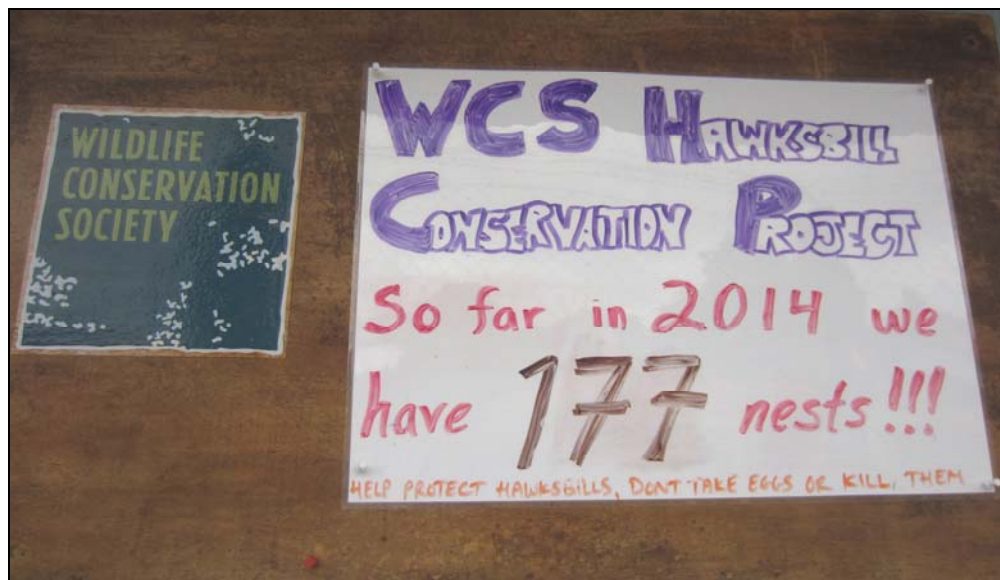 WILDLIFE
CONSERVATION
SOCIETY
WCS HAWKSBILL
CONSERVATION PROJECT
So far in 2014 we
have 177 nests!!!
HELP PROTECT HAWKSBILLS, DONT TAKE EGGS OR KILL, THEM